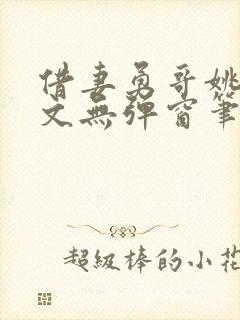 借妻勇哥姚
文無彈窗筆
超級棒的小花